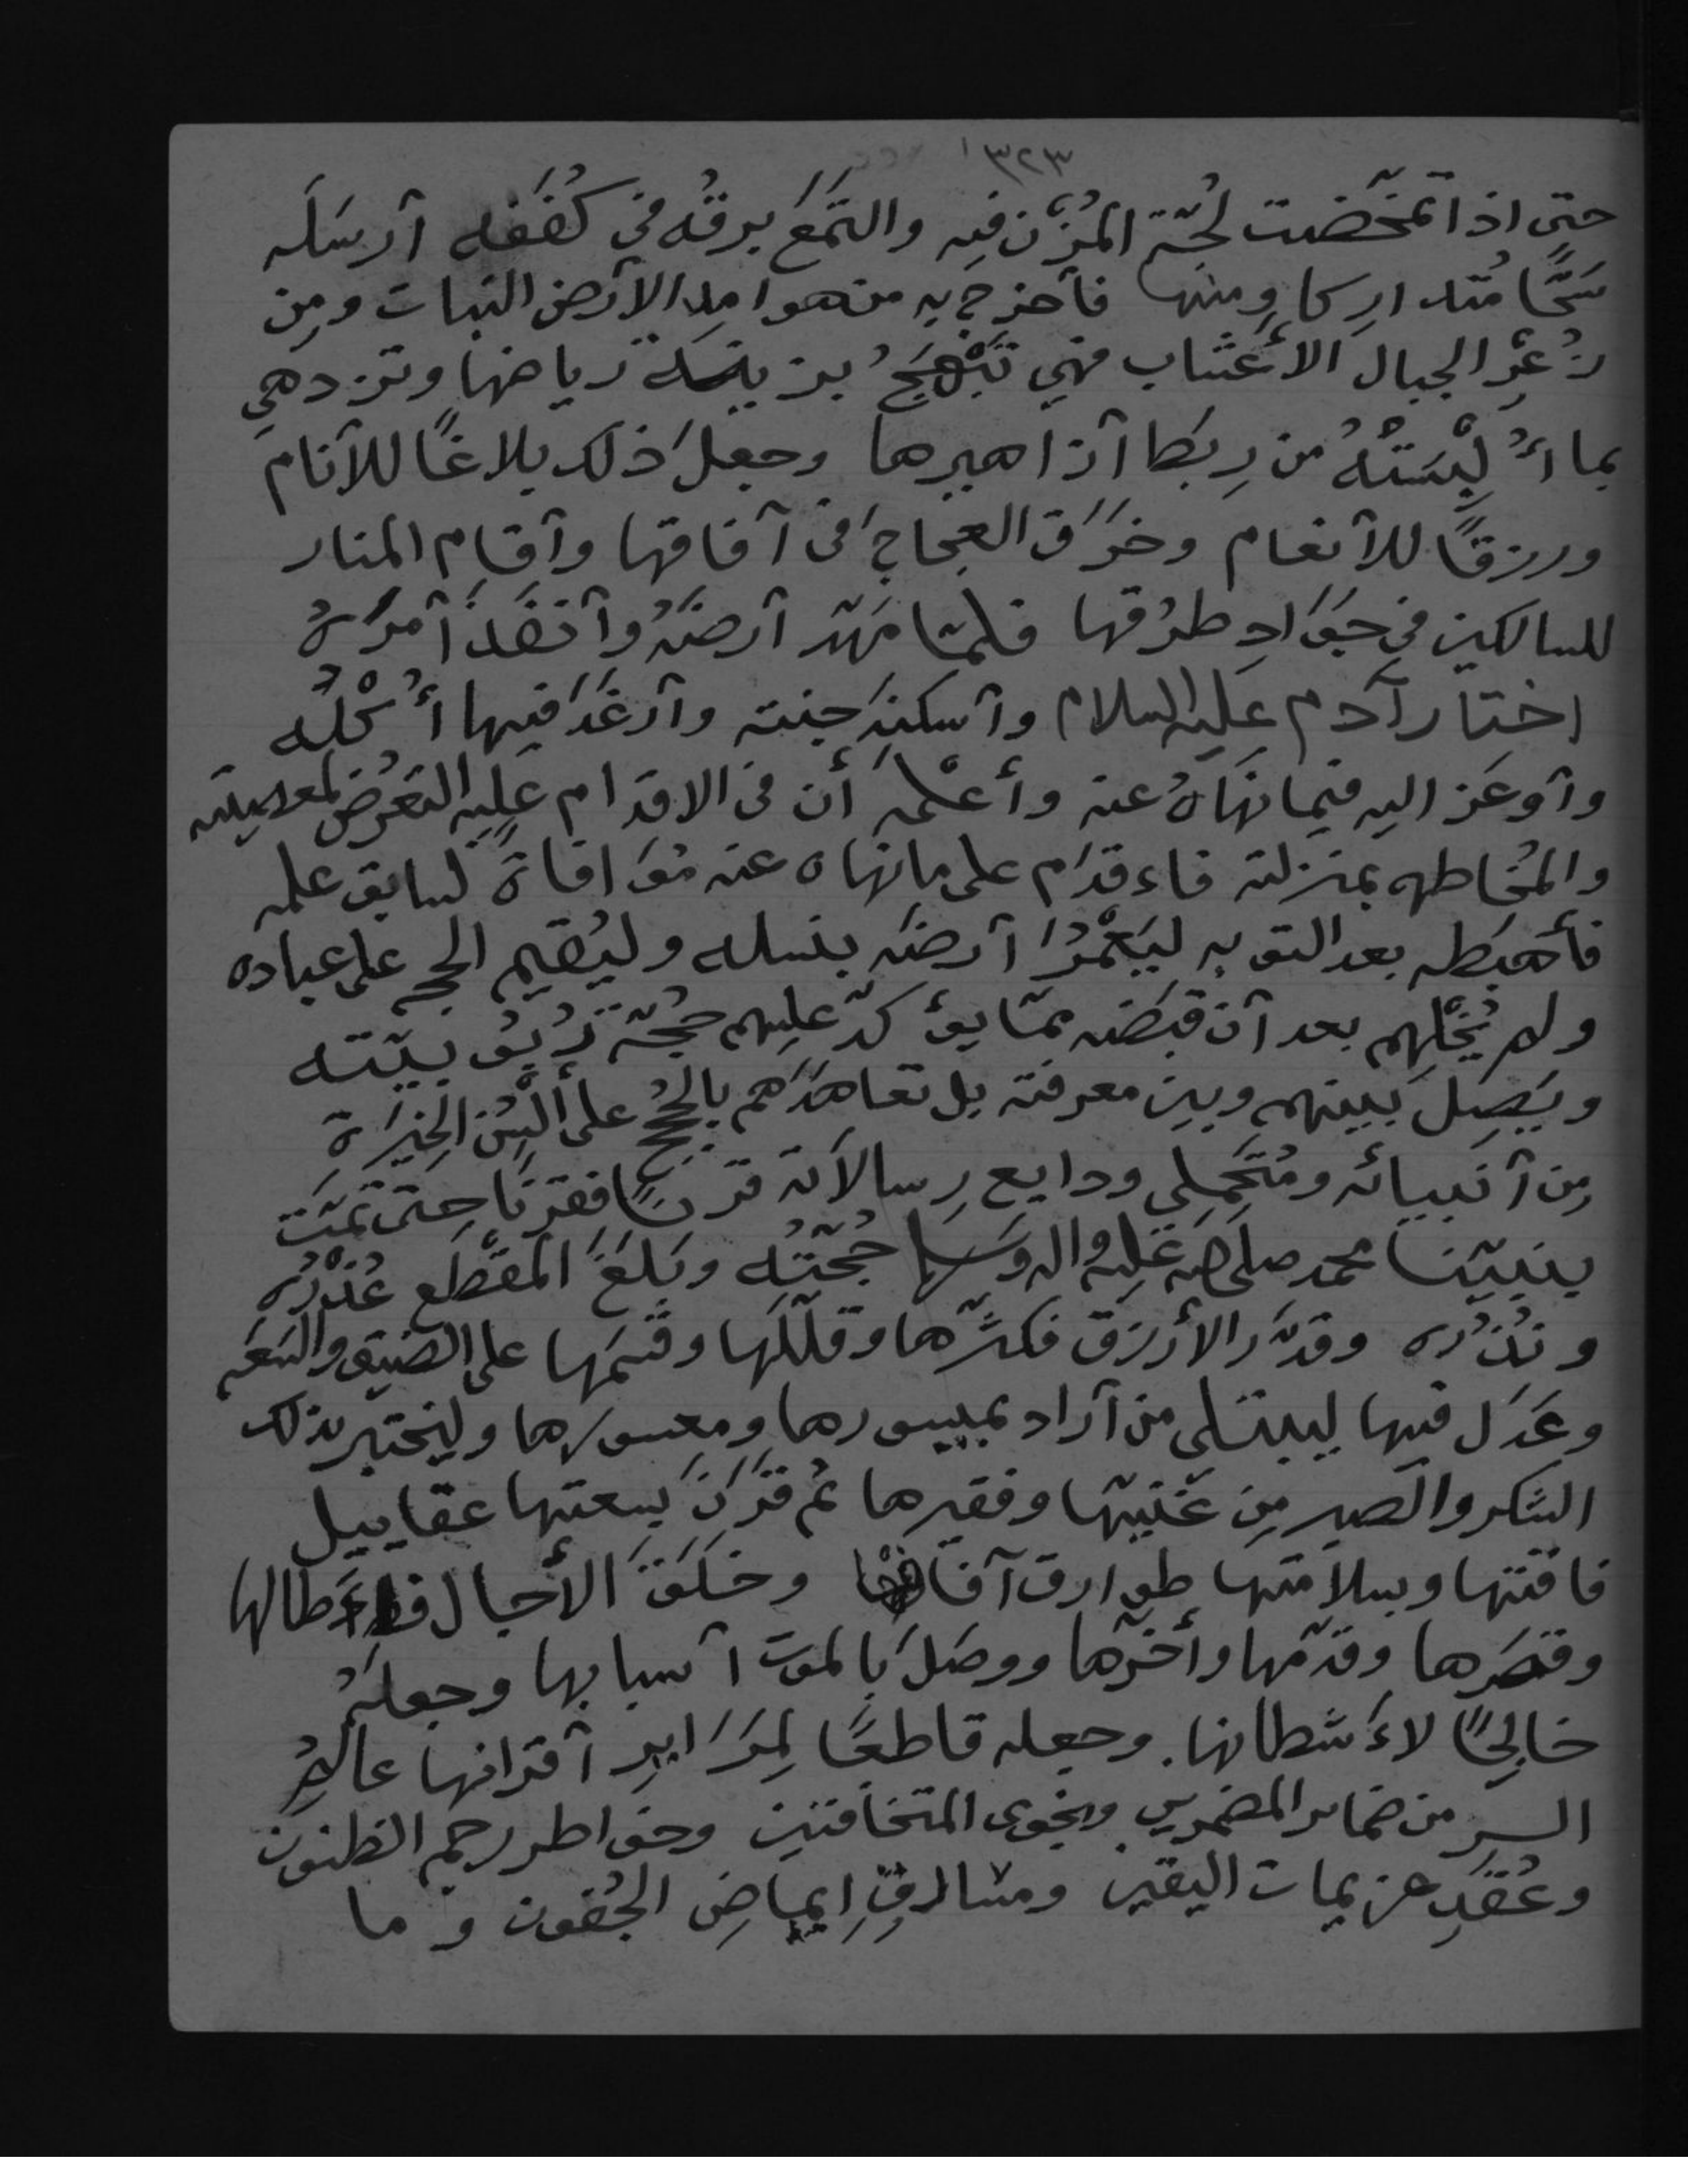 ٣٢٣
حتى اذا تمخَّضت لُجّة المُزْن فيه والتَمَعَ برقُه في كُفَفه آرسَلَه
سَحًّا مُتدارِكا ومنها فآخرج به من هوامِد الآرض النبات ومِن
زُعْرِ الجبال الأعْشاب فهي تَبْهَجُ بزينَة رياضها وتزدهي
بما أُلْبِسَتْهُ من رِيَط آزاهيرها وجعلَ ذلك بلاغًا للآنام
ورزقًا للآنعام وخَرَقَ العجاج في آفاقها وآقام المنار
للسالكين في جَوَادِ طرُقها فلمّا مَهّد آرضَهُ وآنفَذَ آمرَهُ
اختار آدم عليه السلام وآسكنهَ جنته وآرغَدَ فيها أُكْلُه
وآوعَز اليه فيما نهَاهُ عنه وأعْلمه أن في الاقدام عليه التعَرُض لمعصيته
والمُخاطره بمنزلته فاءقدَم على ما نهاه عنه مُوَافاةً لسابق علمه
فأهبَطه بعد التوبه ليَعْمُرَ آرضَه بنسله وليُقيم الحجه على عباده
ولم يُخْلِهم بعد آن قبَضَه ممّا يؤكدّ عليهم حجُّة رُبُوبيّته
ويَصِلَ بينهم وبين معرفته بل تعاهَدَهم بالحُجج على ألْسُن الخِيَرَة
مِن آنبيائه ومُتَحَمِلي ودايع رِسالاته قرنًا فقرنًا حتى تَمّت
بنبيّنا محمد صلى الله عليه واله وسَلم حُجّتُه وبَلَغَ المَقْطَع عُذْرُه
ونُذُرُه وقدَّر الأرزق فكثّرها وقلّلَها وقسّمَها على الضيق والسَعَه
وعَدَل فيها ليبتلي من آراد بميسورها ومعسورها وليختبر بذلك
الشكر والصبر مِن غَنيّها وفقيرها ثم قَرَنَ بسعتها عقابيل
فاقتها وبسلامتها طوارق آفاتها وخَلَقَ الأجال فاءَطالها
وقصّرها وقدّمها وأخرّها ووصَلَ بالموت آسبابها وجعلَهُ
خالِجًا لاءَشطانها. وجعله قاطعًا لِمَرَايرِ آقرانها عالِمُ
السِرِ من ضماير المضمرين ونجوى المتخافتين وخواطر رجم الظنون
وعُقَدِ عزيمات اليقين ومشارقِ ايماضِ الجُفون وما